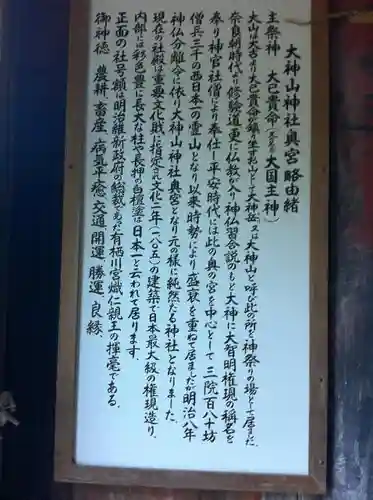 大神山神社奥宮略由緒
主祭神 大己貴命(又の名大国主神)
大山は大古より大己貴命の鎮り坐す神山として大神岳又は大神山と呼び此の所を神祭りの場として居ました。
奈良朝時代より修験道更に仏教が入り神仏習合説のもと大神に大智明権現の稱名を
奉り神官社僧により奉仕し平安時代には此の奥の宮を中心として三院百八十坊
僧兵三千の西日本一の霊山となり以来時勢により盛衰を重ねて居ましたが明治八年
神仏分離令に依り大神山神社奥宮となり元の様に純然たる神社となりました。
現在の社殿は重要文化財に指定され文化二年(一八〇五)の建築で日本最大級の権現造り、
内部には彩色豊に長大な柱や長押の白檀塗は日本一と云われて居ります。
正面の社号額は明治維新政府の総裁であった有栖川宮熾仁親王の揮毫である。
御神徳 農耕、畜産、病気平癒、交通、開運、勝運、良縁、